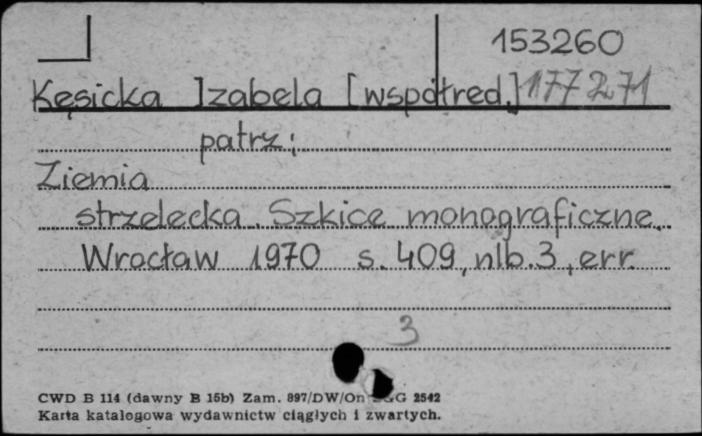 153260
Kęsicka Izabela [współred.] 177271
patrz:
Ziemia
strzelecka. Szkice monograficzne.
Wrocław 1970 s. 409, nlb. 3, err.
3
CWD B 114 (dawny B 15b) Zam. 897/DW/On GG 2542
Karta katalogowa wydawnictw ciągłych i zwartych.